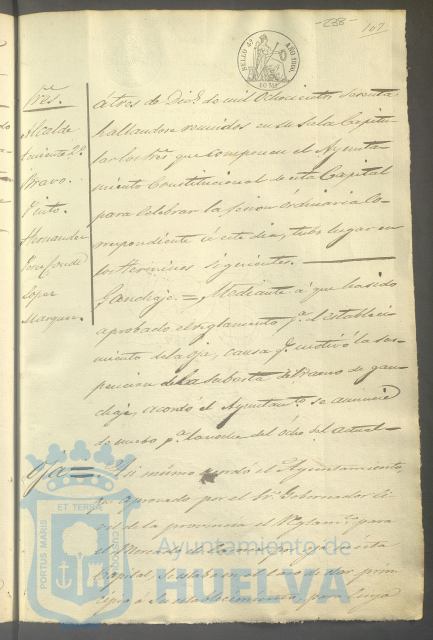 -238-
107
SELLO 4º AÑO 1860
Sres.
Alcalde
Teniente 2º
Bravo.
Pinto.
Hernandez
Lopez
Marquez
á tres de Dice de mil Ochocientos Sesenta
hallandose reunidos en su Sala Capitu-
lar los Sres que componen el Ayunta-
miento Constitucional de esta Capital
para Celebrar la sesion Ordinaria Co-
rrespondiente á este dia, tubo lugar en
los terminos siguientes.
= Mediante á que ha sido
aprobado el reglamento pa el estableci-
miento de la causa qe motivó la sus-
pension de la subasta del ramo de
acordó el Ayuntamto se anuncie
de nuevo pa la noche del ocho del actual
= Asi mismo acordó el Ayuntamiento,
aprovado por el Sr Gobernador Ci-
vil de la provincia el Reglamto para
el
Capital, dar prin-
cipio á su establecimiento, para
PORTUS MARIS ET TERRAE CUSTODIA
Ayuntamiento de
HUELVA